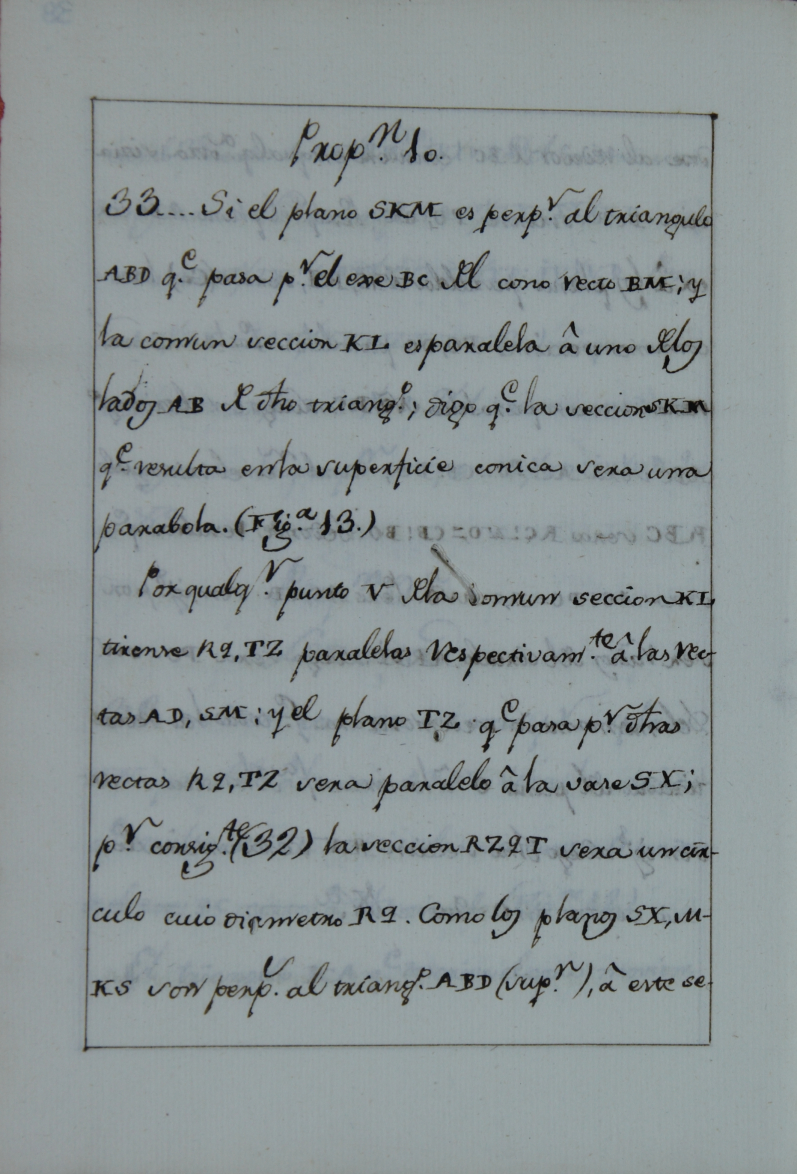 Propⁿ. 10.
33.... Si el plano SKM es perpʳ. al triangulo
ABD qᵉ. pasa pʳ. el exe BC del cono recto BM; y
la comun seccion KL es paralela â uno delos
lados AB del dho triangᵒ.; digo qᵉ. la seccion SKM
qᵉ. resulta en la superficie conica sera una
parabola. (Figᵃ. 13.)
Por qualqʳ. punto V dela comun seccion KL
tirense RQ, TZ paralelas respectivamᵗᵉ. â las rec-
tas AD, SM; y el plano TZ qᵉ pasa pʳ. dhas
rectas RQ, TZ sera paralelo â la vase SX;
pʳ. consigᵗᵉ. (32) la seccion RZQT sera un cir-
culo cuio diametro RQ. Como los planos SX, M-
KS son perpʳ. al triangᵒ. ABD (supʳ.), â este se-